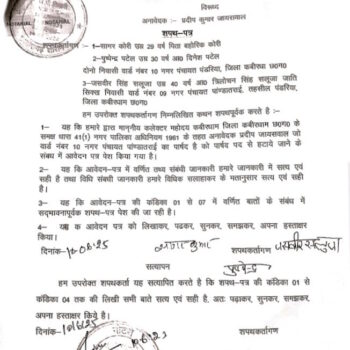 विरूद्ध
अनावेदक :- प्रदीप कुमार जायसवाल
शपथ-पत्र
शपथकर्तागण :- 1-सागर कोरी उम्र 29 वर्ष पिता बहोरिक कोरी
2-पुष्पेन्द्र पटेल उम्र 30 वर्ष आ0 दिनेश पटेल
दोनो निवासी वार्ड नंबर 10 नगर पंचायत पंडरिया, जिला कबीरधाम छ0ग0
3-जसवीर सिंह सलूजा उम्र 40 वर्ष आ0 त्रिलोचन सिंह सलूजा जाति
सिक्ख निवासी वार्ड नंबर 09 नगर पंचायत पांण्डातराई. तहसील पंडरिया,
जिला कबीरधाम छ0ग0
हम उपरोक्त शपथकर्तागण निम्नलिखित कथन शपथपूर्वक करते है :-
1- यह कि हमारे द्वारा माननीय कलेक्टर महोदय कबीरधाम जिला कबीरधाम छ0ग0 के
समक्ष धारा 41(1) नगर पालिका अधिनियम 1961 के तहत अनावेदक प्रदीप जायसवाल जो
वार्ड नंबर 10 नगर पंचायत पांण्डातराई का पार्षद है को पार्षद पद से हटाये जाने के
संबंध में आवेदन-पत्र पेश किया गया है।
2- यह कि आवेदन-पत्र में वर्णित तथ्य संबंधी जानकारी हमारे जानकारी में सत्य एवं
सही है तथा विधि संबंधी जानकारी हमारे विधिक सलाहाकार के मतानुसार सत्य एवं सही
है।
3- यह कि आवेदन-पत्र की कंडिका 01 से 07 में वर्णित बातों के संबंध में
सद्भावनापूर्वक शपथ-पत्र पेश की जा रही है।
4- यह क आवेदन पत्र को लिखाकर, पढकर, सुनकर, समझकर, अपना हस्ताक्षर
किया।
दिनांक- शपथकर्तागण
सत्यापन
हम उपरोक्त शपथकर्ता यह सत्यापित करते है कि शपथ-पत्र की कंडिका 01 से
कंडिका 04 तक की लिखी सभी बाते सत्य एवं सही है, अतः पढाकर, सुनकर, समझकर,
अपना हस्ताक्षर किये है।
दिनांक- शपथकर्तागण